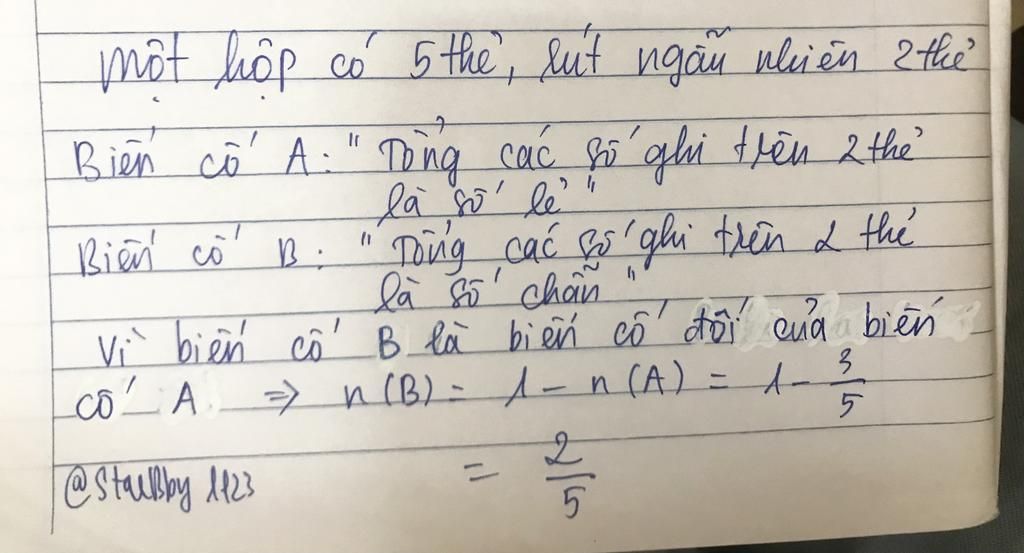 Một hộp có 5 thẻ, rút ngẫu nhiên 2 thẻ
Biến cố A: "Tổng các số ghi trên 2 thẻ
là số lẻ"
Biến cố B: "Tổng các số ghi trên 2 thẻ
là số chẵn"
Vì biến cố B là biến cố đối của biến
cố A => n(B) = 1 - n(A) = 1 - 3/5
= 2/5
@StaBby 1123